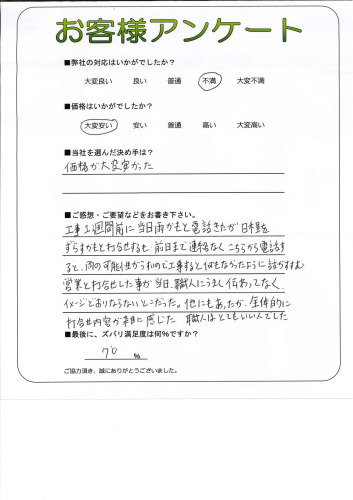 お客様アンケート
■弊社の対応はいかがでしたか?
大変良い 良い 普通 不満 大変不満
■価格はいかがですか?
大変安い 安い 普通 高い 大変高い
■当社を選んだ決め手は?
価格が大変安かった
■ご感想・ご要望などをお書き下さい。
工事1週間前に当日雨かもと電話きたが日程を
ずらすかもと打合せするも前日まで連絡なくこちらから電話す
ると、雨の可能性からいので工事すると何もなかったように話がすすむ
営業と打合せした事が当日、職人にうまく伝わってなく、
イメージどおりならないところだった。他にもあったが、全体的に
打合せ内容が本当に感じた 職人はとてもいい人でした
■最後に、ズバリ満足度は何%ですか?
70 %
ご協力頂き、誠にありがとうございました。